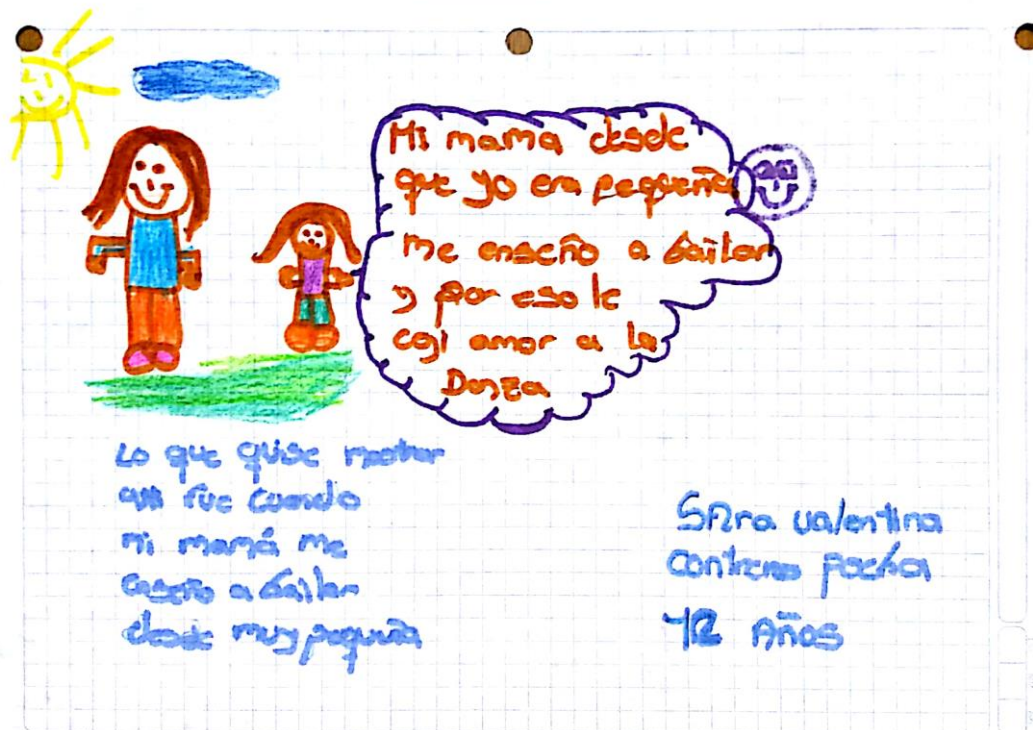 Mi mama desde
que yo era pequeña
me enseño a bailar
y por eso le
cogi amor a la
Danza
Lo que quise mostrar
aqui fue cuando
mi mamá me
enseño a bailar
desde muy pequeña
Sara valentina
contreras
12 Años